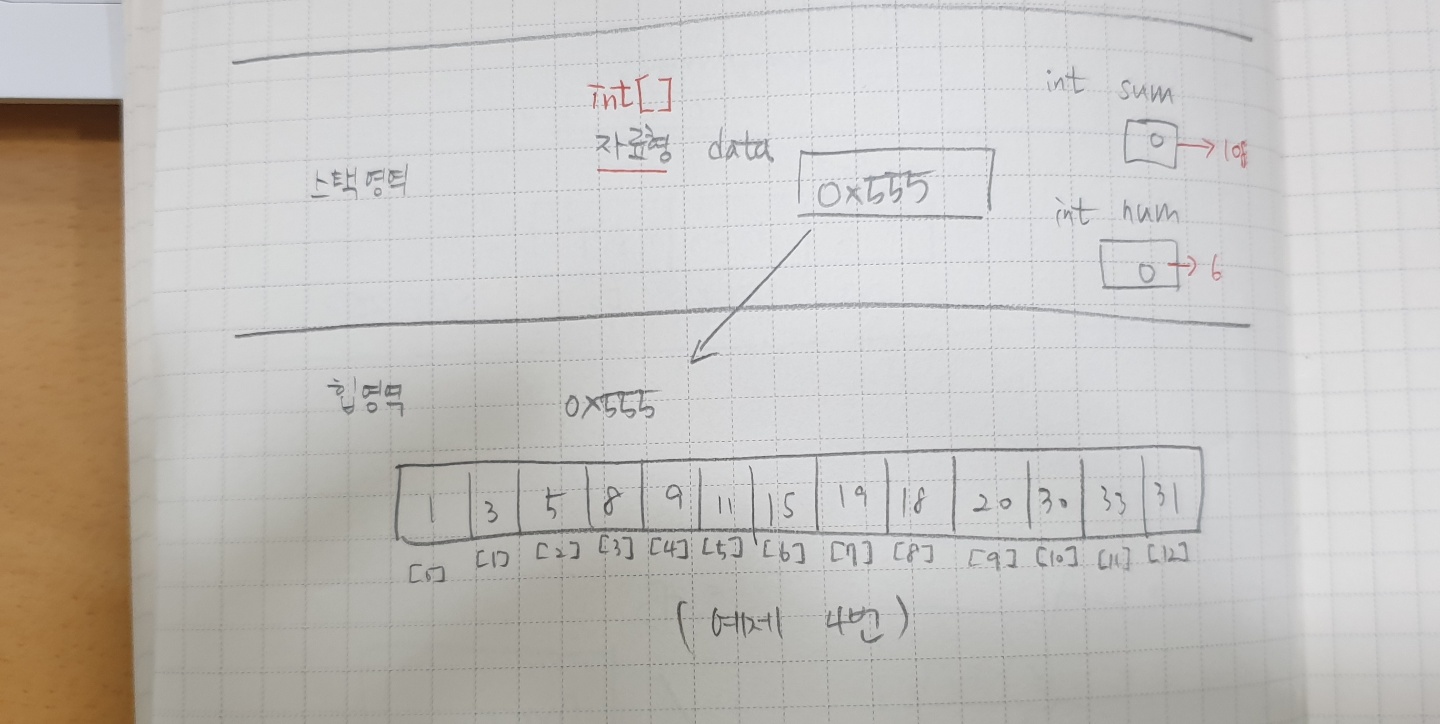 int[]
자료형 data
0x555
스택영역
int sum
0 → 108
int num
0 → 6
힙영역
0x555
1 3 5 8 9 11 15 19 18 20 30 33 31
[0] [1] [2] [3] [4] [5] [6] [7] [8] [9] [10] [11] [12]
(예제 4번)